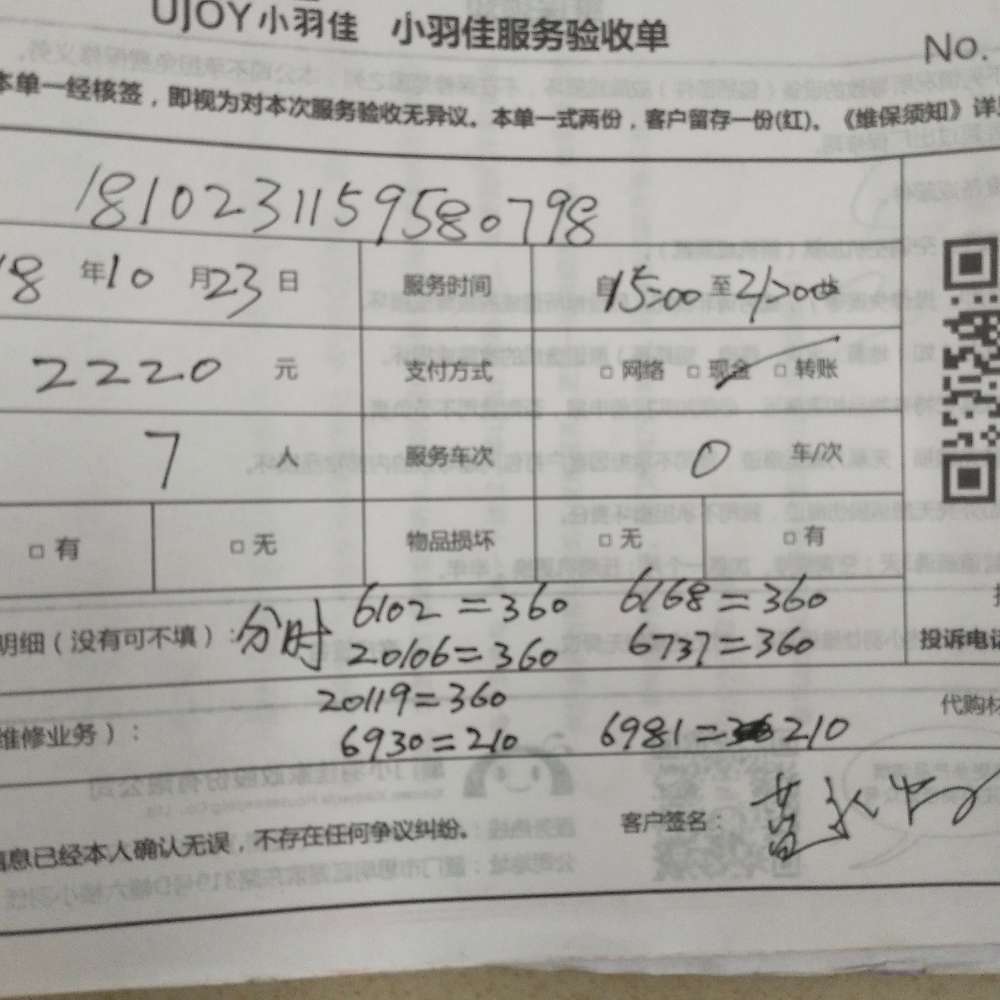 UJOY小羽佳 小羽佳服务验收单
No.
本单一经核签，即视为对本次服务验收无异议。本单一式两份，客户留存一份(红)。《维保须知》详
1810231159580798
18 年 10 月 23 日 服务时间 自 15:00 至 21:00
2220 元 支付方式 □ 网络 □ 现金 □ 转账
7 人 服务车次 0 车/次
□ 有 □ 无 物品损坏 □ 无 □ 有
明细（没有可不填）: 分时 6102=360 6168=360
20106=360 6737=360
投诉电话
20119=360
维修业务）: 6930=210 6981=210
代购材
信息已经本人确认无误，不存在任何争议纠纷。 客户签名: